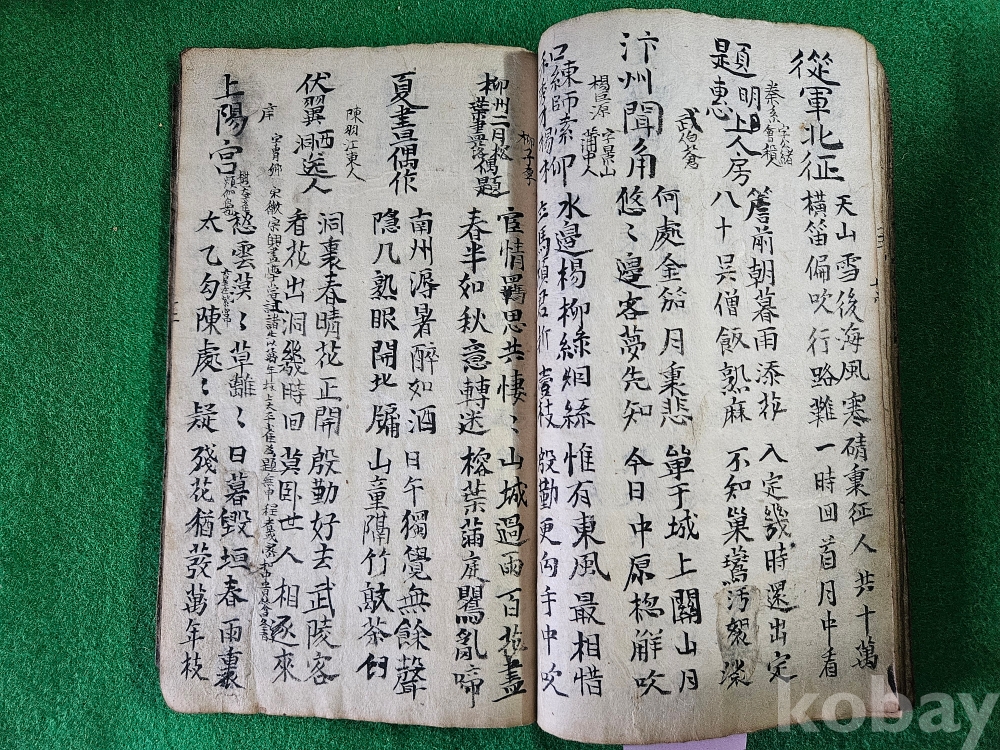 從軍北征
天山雪後海風寒 磧裏征人共十萬
橫笛偏吹行路難 一時回首月中看
題明惠上人房
秦系 字公緖 會稽人
簷前朝暮雨添花 入定幾時還出定
八十吳僧飯熟麻 不知巢鷰汚袈裟
汴州聞角
武伯蒼
何處金笳月裏悲 單于城上關山月
悠〻邊客夢先知 今日中原楤解吹
和練師索楊柳
楊巨源 字景山 蒲中人
水邊楊柳綠烟絲 惟有東風最相惜
立馬煩君折壹枝 殷勤更向手中吹
柳州二月榕葉盡落偶題
柳子厚
宦情羈思共悽〻 山城過雨百花盡
春半如秋意轉迷 榕葉滿庭鸎亂啼
夏晝偶作
南州溽暑醉如酒 日午獨覺無餘聲
隱几熟眠開北牖 山童隔竹敲茶臼
伏翼西洞送人
陳羽 江東人
洞裏春晴花正開 殷勤好去武陵客
看花出洞幾時回 莫卧世人相逐來
上陽宮
愁雲漠〻草離〻 日暮毀垣春雨裏
太乙勾陳處〻疑 殘花猶發萬年枝
kobay